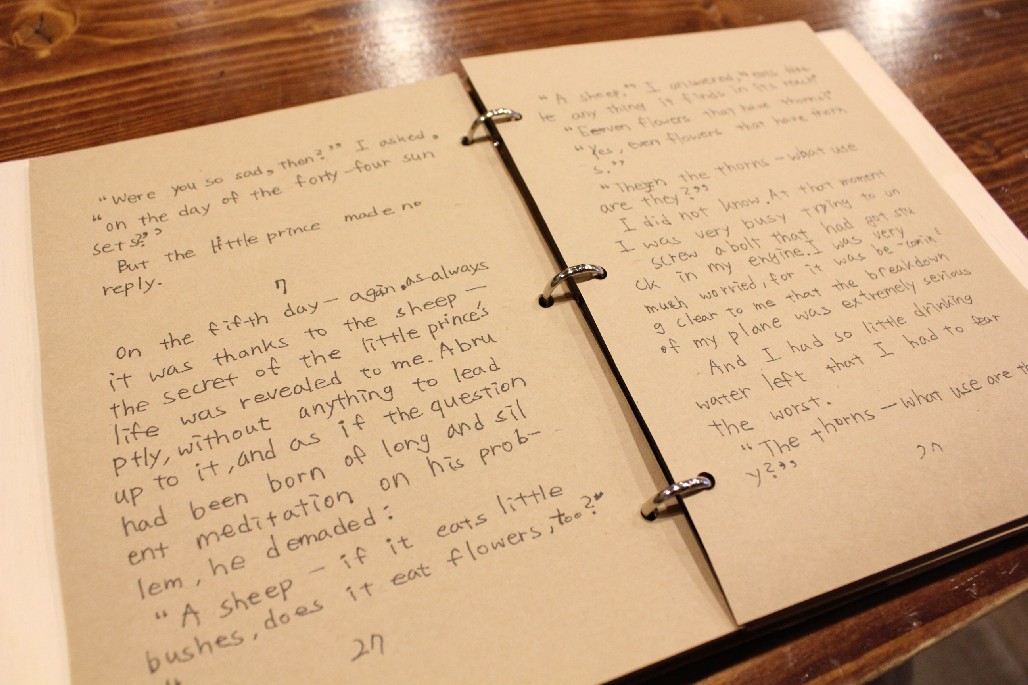 “Were you so sad, then?” I asked,
“on the day of the forty-four sun
sets?”
But the little prince made no
reply.
7
On the fifth day — again, as always
it was thanks to the sheep —
the secret of the little prince's
life was revealed to me. Abru
ptly, without anything to lead
up to it, and as if the question
had been born of long and sil
ent meditation on his prob-
lem, he demaded:
“A sheep — if it eats little
bushes, does it eat flowers, too?”
27
“A sheep,” I answered, “eats
any thing it finds in its reach”
“Eeven flowers that have thorns?”
“Yes, even flowers that have thorn
s.”
“Then the thorns — what use
are they?”
I did not know. At that moment
I was very busy trying to un
screw a bolt that had got stu
ck in my engine. I was very
much worried, for it was be-comin
g clear to me that the breakdown
of my plane was extremely serious
And I had so little drinking
water left that I had to fear
the worst.
“The thorns — what use are the
y?”